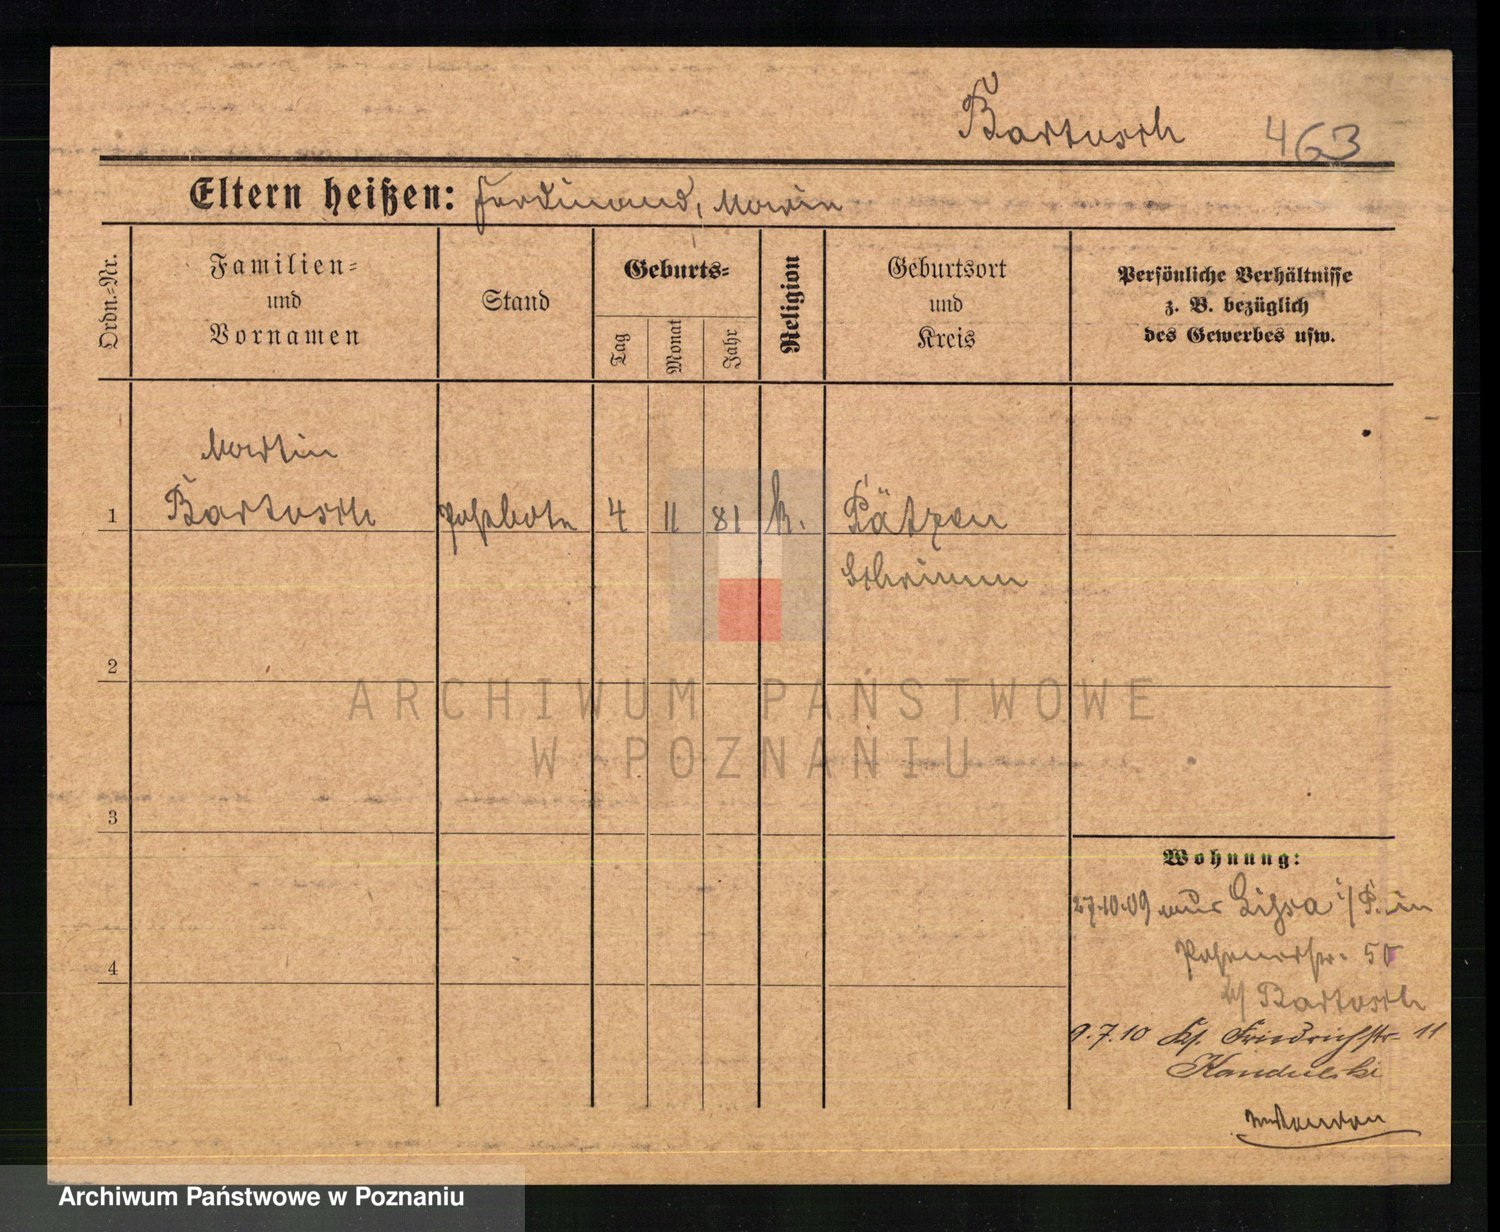 Bartusch 463
Eltern heißen: Ferdinand, Marie
Ordn.-Nr.
Familien-
und
Vornamen
Stand
Geburts-
Tag
Monat
Jahr
Religion
Geburtsort
und
Kreis
Persönliche Verhältnisse
z. B. bezüglich
des Gewerbes usw.
Martin
1 Bartusch Postbote 4 11 81 k. Pätzen
Schrimm
2
ARCHIWUM PAŃSTWOWE
W POZNANIU
3
Wohnung:
27.10.09 aus Lissa i/P. in
Posenerstr. 50
b/ Bartusch
4
9.7.10 Friedrichstr 11
Kandulski
Archiwum Państwowe w Poznaniu